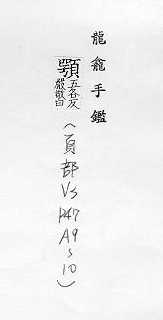 龍龕手鑑
顎五各反嚴敬曰
(頁部 VS P47 A9~10)